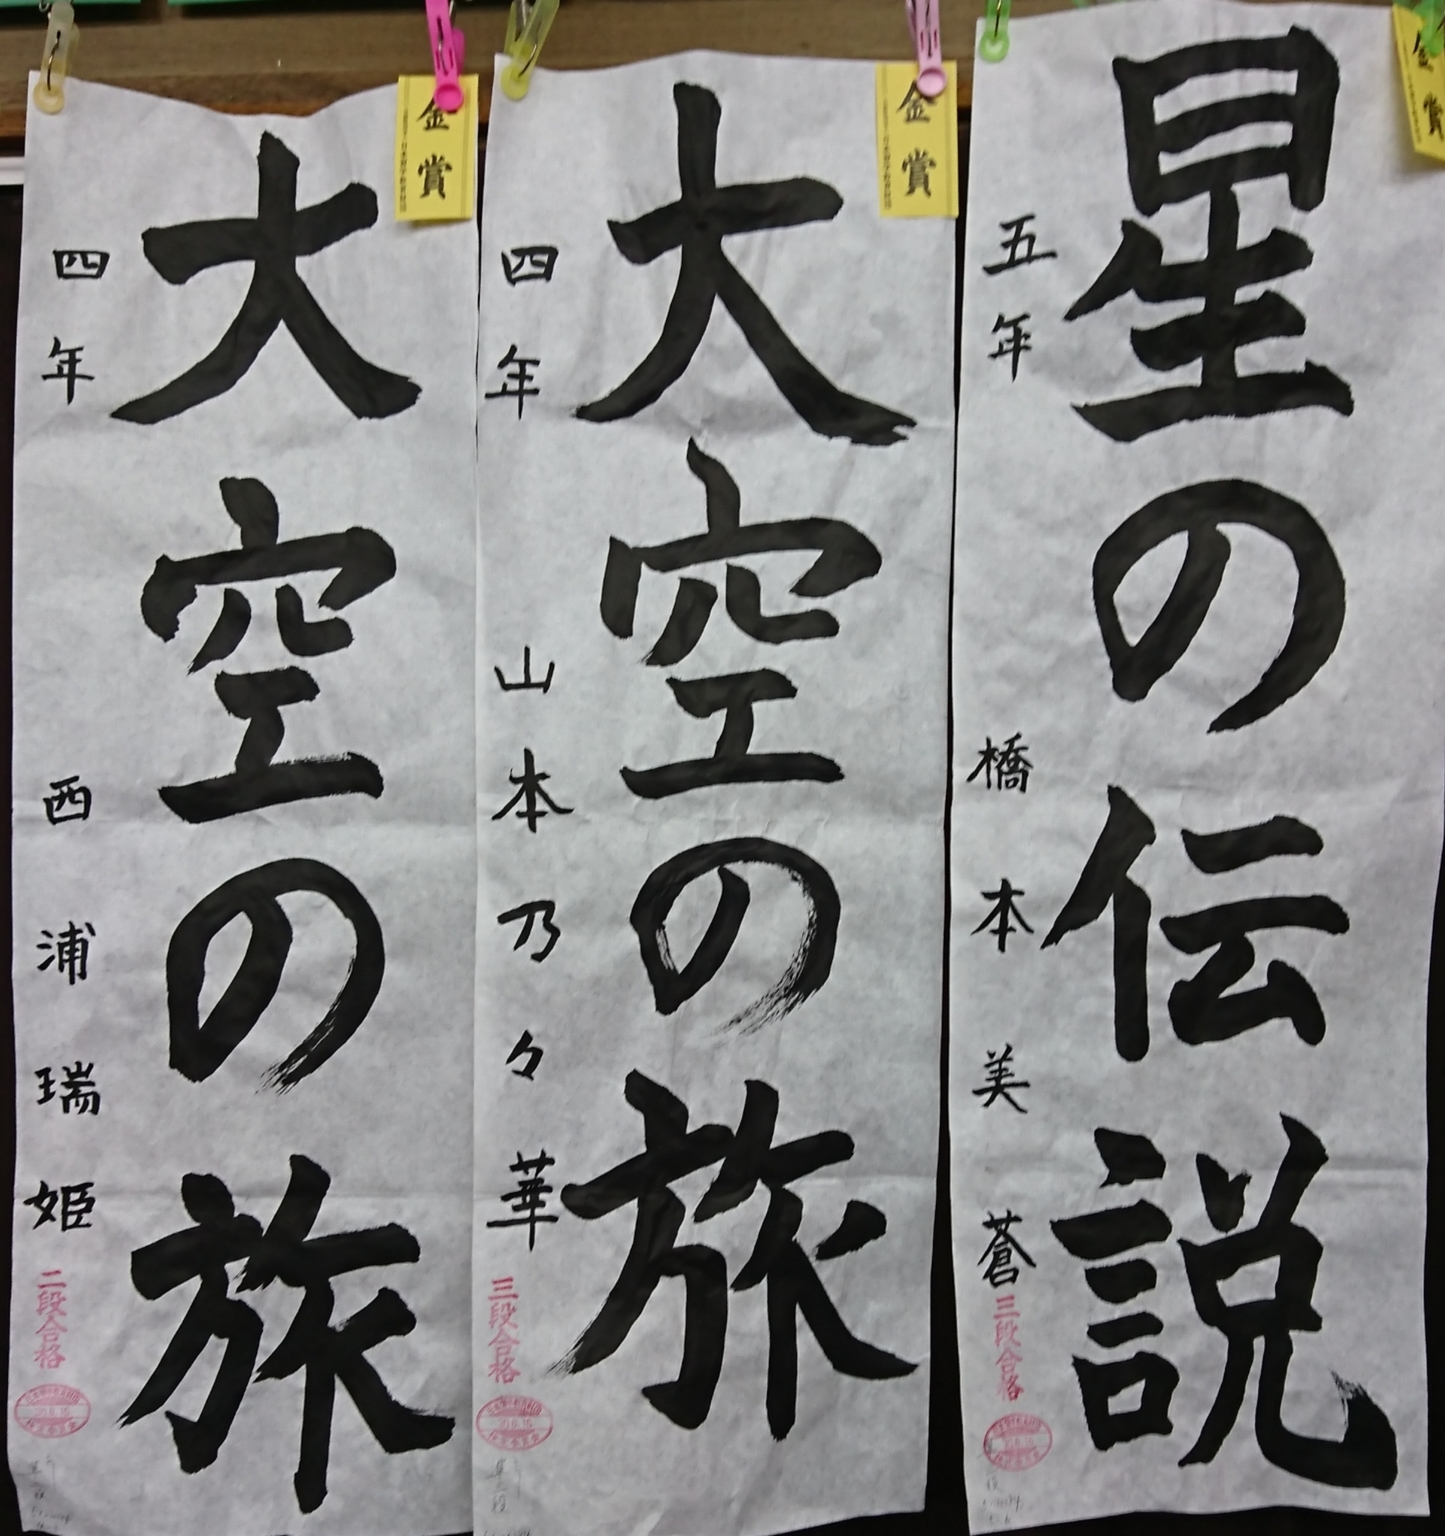 星の伝説
五年 橋本美蒼
三段合格
金賞
大空の旅
四年 山本乃々華
三段合格
金賞
大空の旅
四年 西浦瑞姫
二段合格
金賞